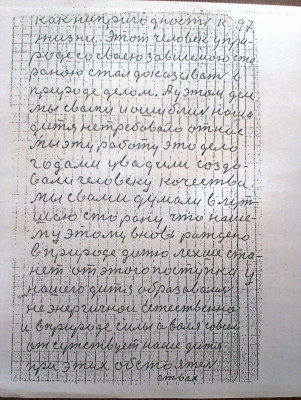 как непригодность к 97
жизни. Этот человек у при
роде со своею зависимою ста
раною стал доказывать в
природе делом. А у этом дели
мы сваими ошибках наша
дитя не требовало от нас
мы эту работу это дело
годами увадили созда
вали человеку качества
мы свами думали в лут
шою сторану что наше
му этому вновь раждено
в природе дитю легше ста
нет от этого поступка у
нашего дитя образавалися
не энергичной естественно
и в природе силы а воля совсем
отсутствует наше дитя
при этих обстоятел
ствах